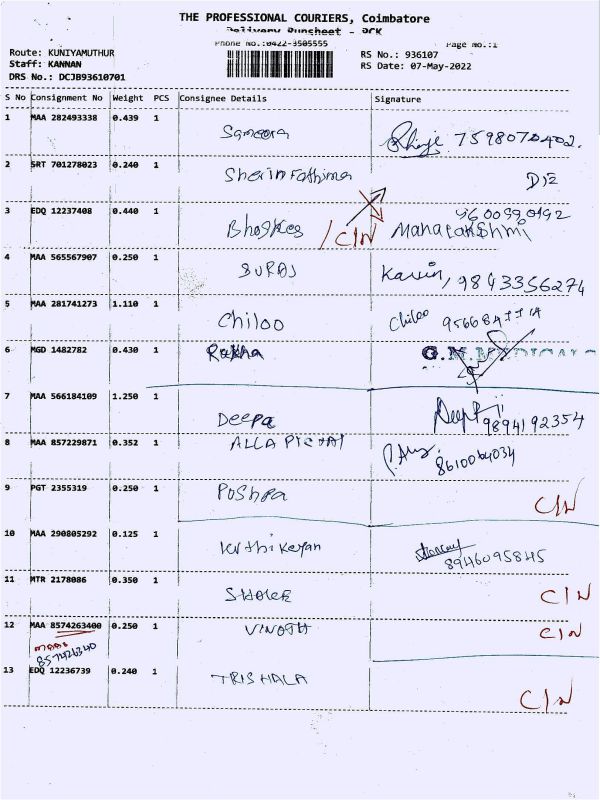 THE PROFESSIONAL COURIERS, Coimbatore
Delivery Runsheet - PCK
Phone No.:0422-3505555
Page No.:1
Route: KUNIYAMUTHUR
RS No.: 936107
Staff: KANNAN
RS Date: 07-May-2022
DRS No.: DCJB93610701
S No Consignment No Weight PCS Consignee Details Signature
1 MAA 282493338 0.439 1 Sameera 7598070402.
2 SRT 701278023 0.240 1 Sherin Fathima
3 EDQ 12237408 0.440 1 C/N Mahalakshmi
4 MAA 565567907 0.250 1 SURAJ 9843356274
5 MAA 281741273 1.110 1 Chiloo Chiloo
6 MGD 1482782 0.430 1 G.M.
7 MAA 566184109 1.250 1 Deepa 9894192354
8 MAA 857229871 0.352 1 ALLA PICHAI 8610064034
9 PGT 2355319 0.250 1 Poshpa C/N
10 MAA 290805292 0.125 1 Kirthikeyan 8946095845
11 MTR 2178086 0.350 1 C/N
12 MAA 8574263400 0.250 1 VINOTH C/N
857426340
13 EDQ 12236739 0.240 1 TRISHALA C/N